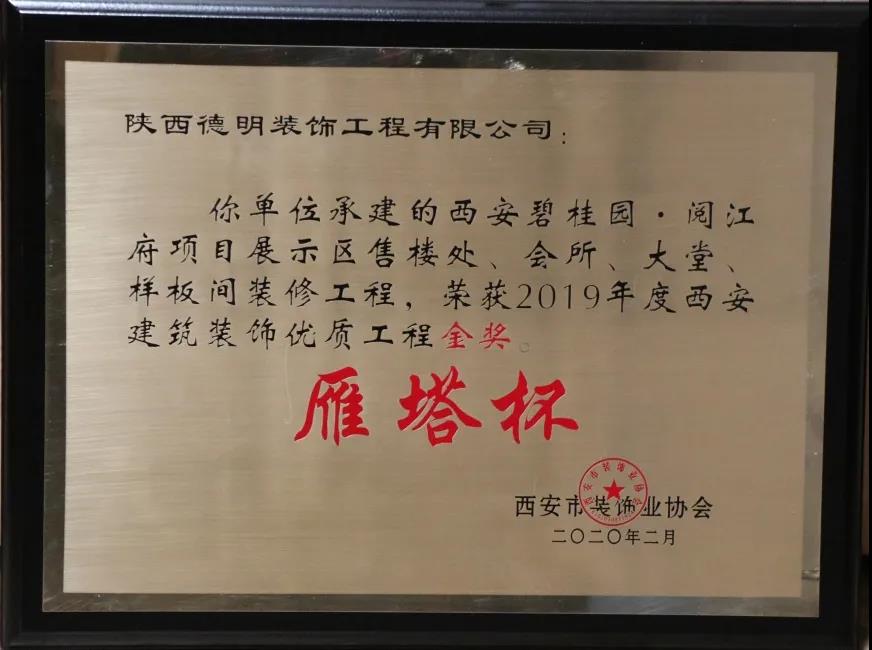 陕西德明装饰工程有限公司：
你单位承建的西安碧桂园·阅江
府项目展示区售楼处、会所、大堂、
样板间装修工程，荣获2019年度西安
建筑装饰优质工程金奖。
雁塔杯
西安市装饰业协会
西安市装饰业协会
二〇二〇年二月